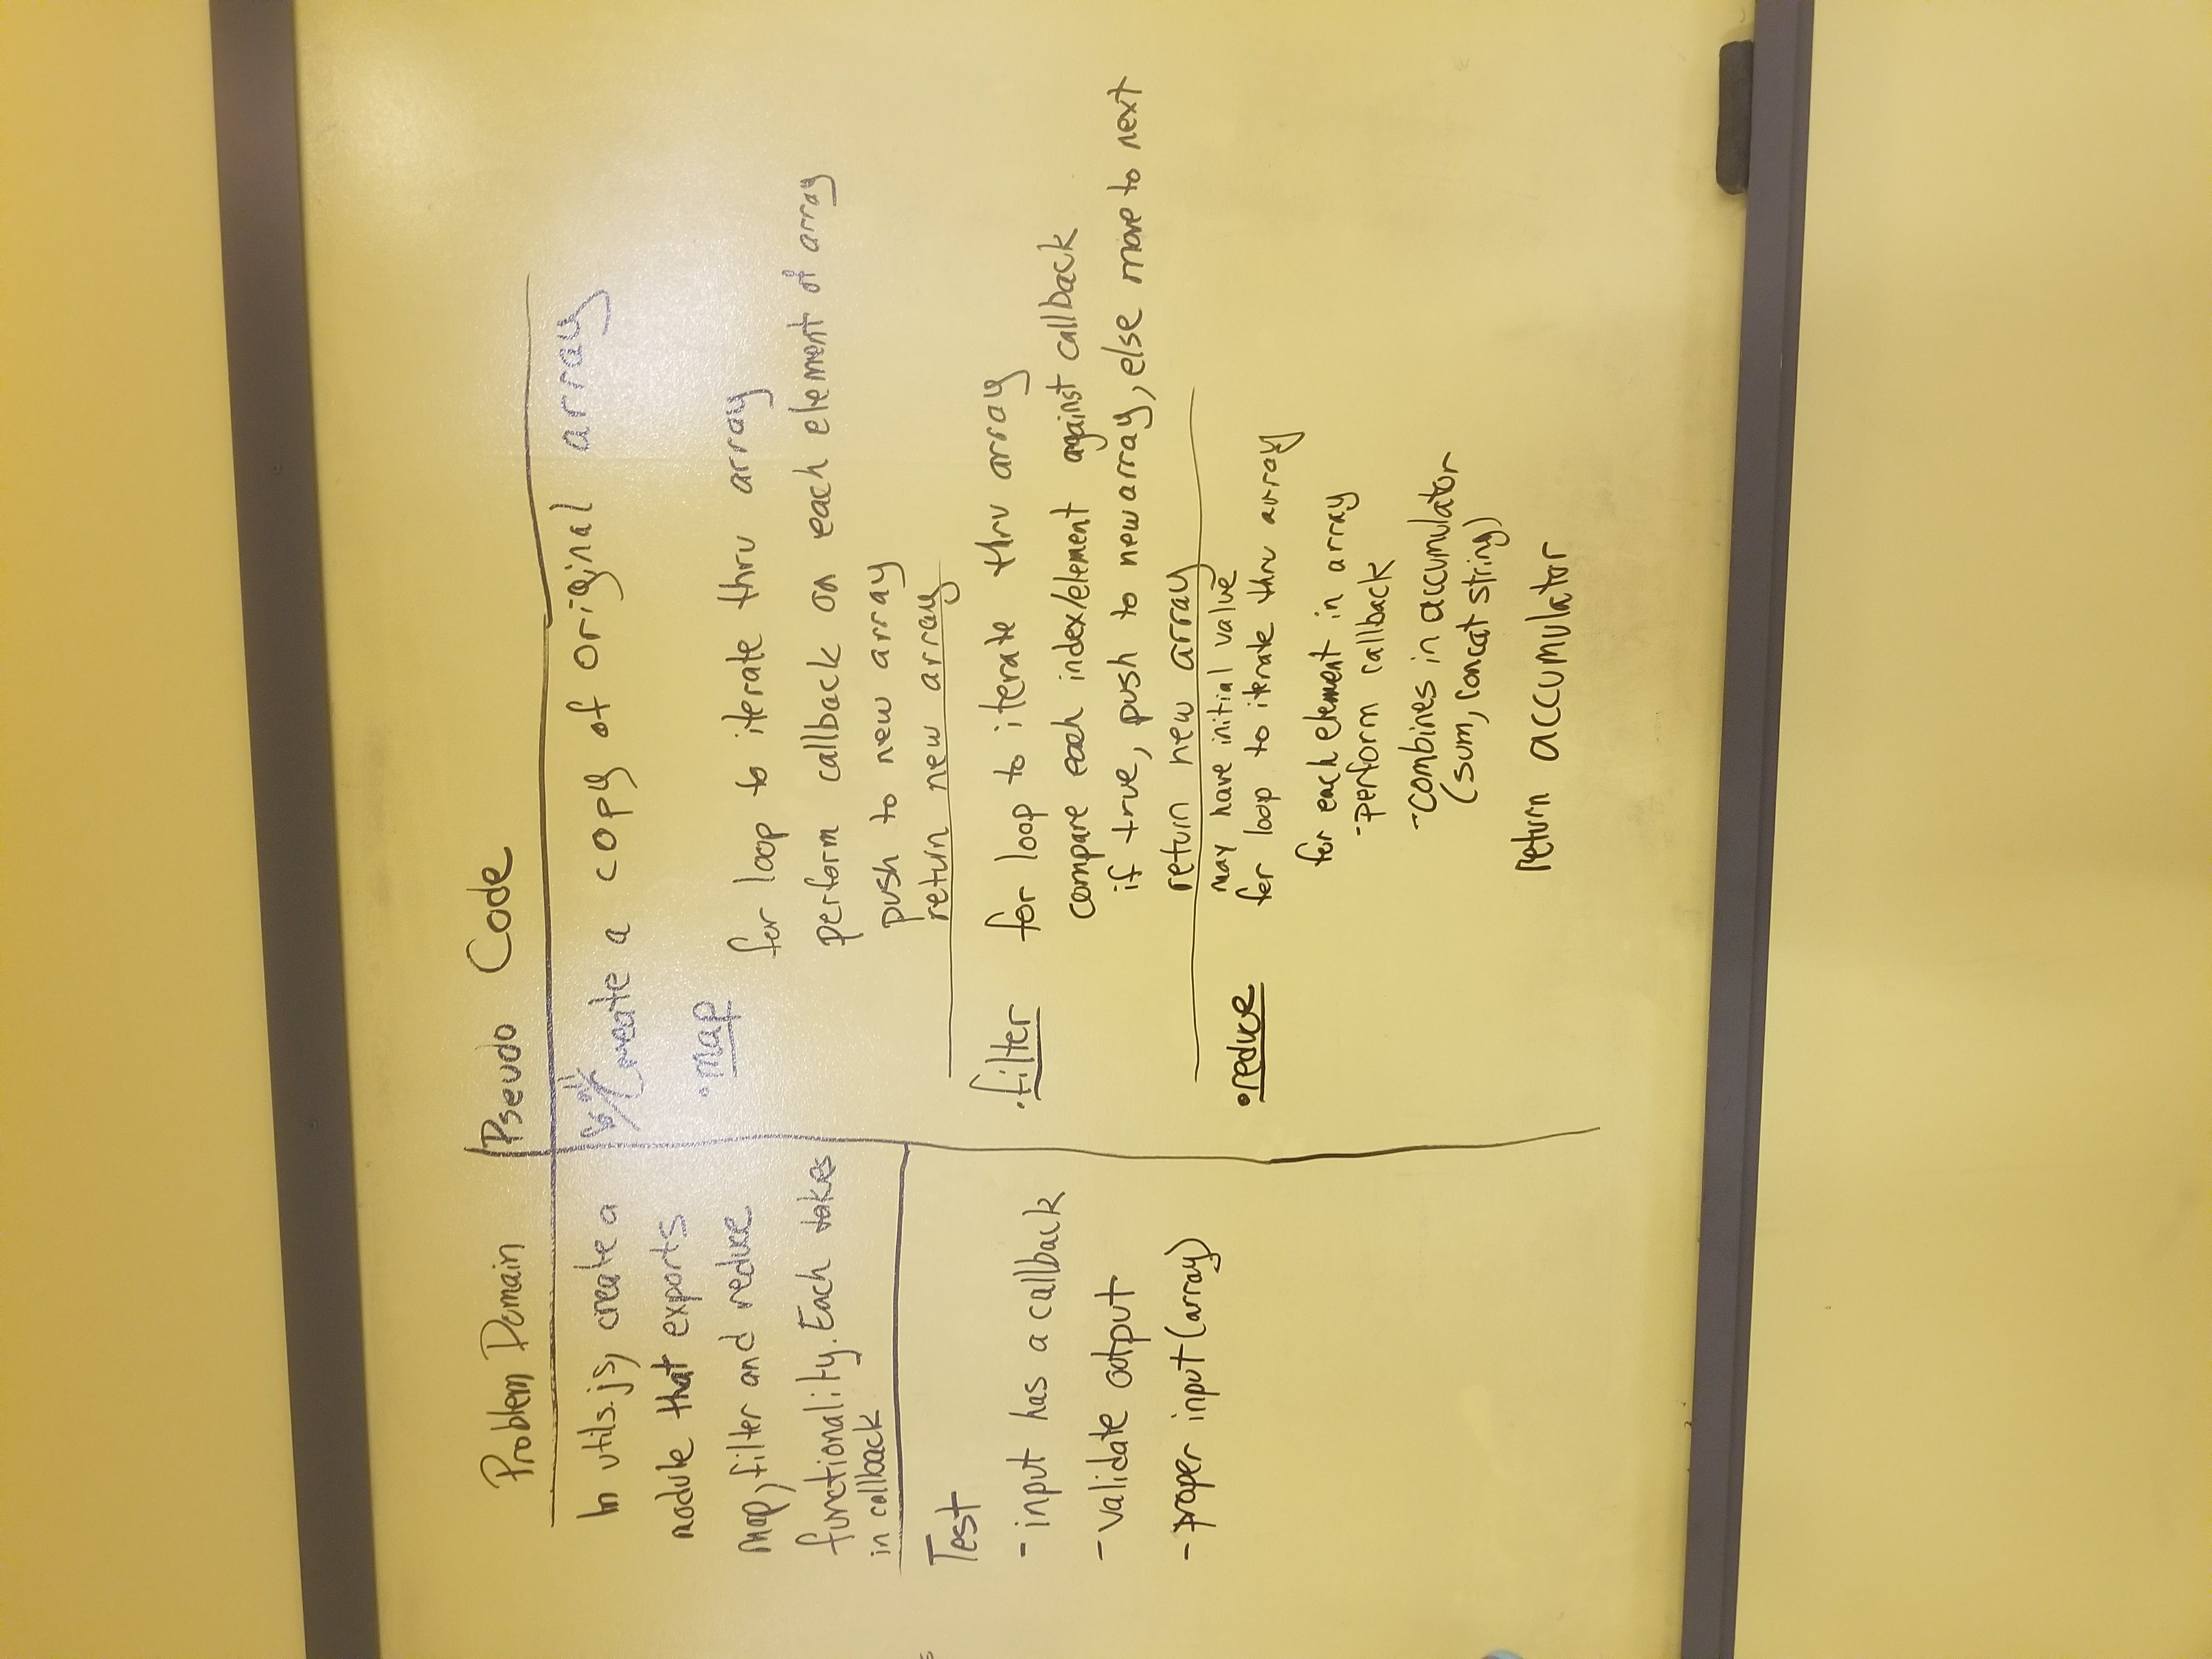 Problem Domain
In utils.js, create a
module that exports
map, filter and reduce
functionality. Each takes
in callback
Test
- input has a callback
- validate output
- proper input (array)
Pseudo Code
for all
Create a copy of original array
.map
for loop to iterate thru array
perform callback on each element of array
push to new array
return new array
.filter
for loop to iterate thru array
compare each index/element against callback
if true, push to new array, else move to next
return new array
.reduce
may have initial value
for loop to iterate thru array
for each element in array
- perform callback
- combines in accumulator
(sum, concat string)
return accumulator